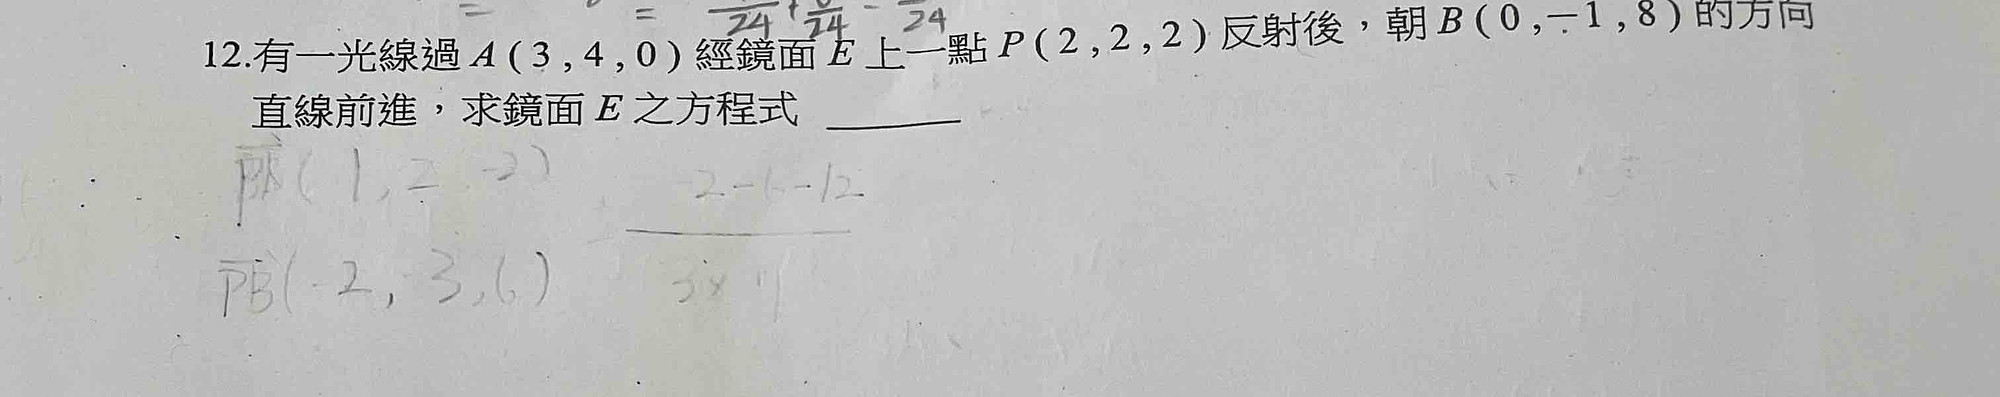 = = 24 + 24 - 24
12.有一光線過 A ( 3 , 4 , 0 ) 經鏡面 E 上一點 P ( 2 , 2 , 2 ) 反射後，朝 B ( 0 , －1 , 8 ) 的方向
直線前進，求鏡面 E 之方程式 ______
PA ( 1, 2 -2)
-12
PB (-2, -3, 6)